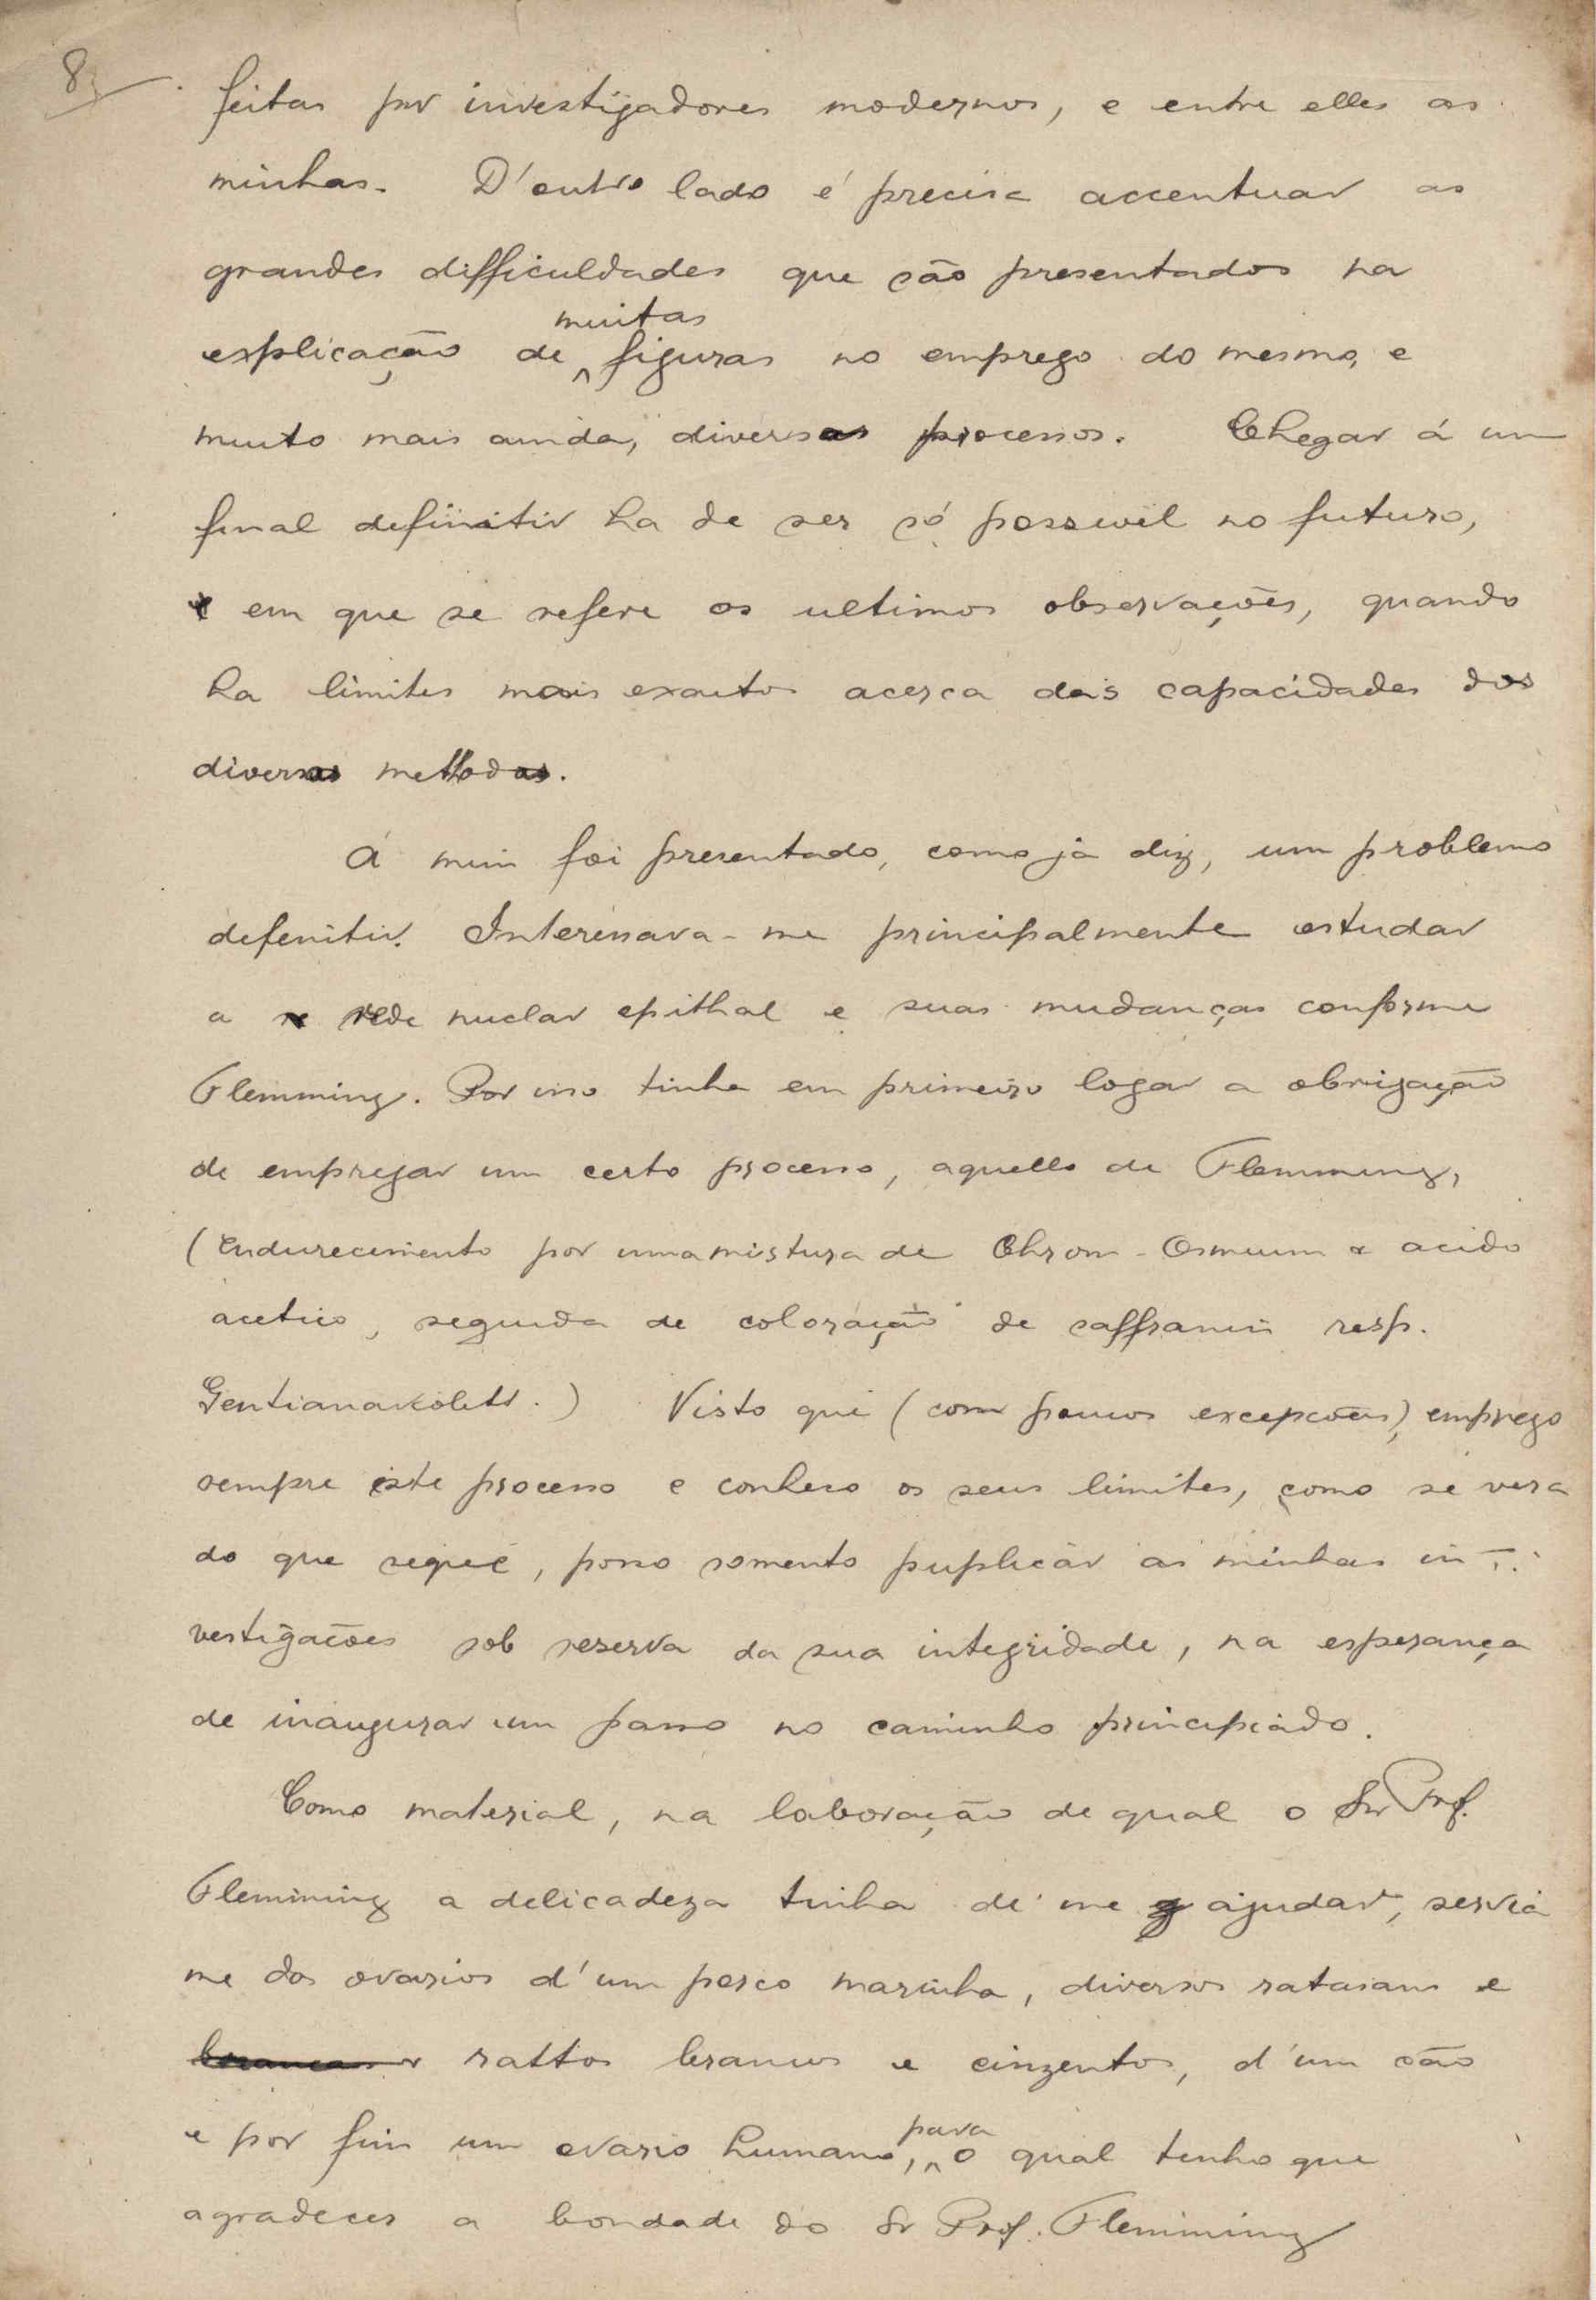 8
feitas por investigadores modernos, e entre elles as
minhas. D'outro lado é precisa accentuar as
grandes difficuldades que são presentados na
muitas
explicação de figuras no emprego do mesmo, e
muito mais ainda, diversos processos. Chegar á um
final definitiv ha de ser só possivel no futuro,
em que se refere os ultimos observações, quando
ha limites mais exactos acerca das capacidades dos
diversos methodos.
Á mim foi presentado, como já diz, um problema
defenitiv. Interessava-me principalmente estudar
a rede nuclar epithal e suas mudanças conforme
Flemming. Por isso tinha em primeiro logar a obrigação
de empregar um certo processo, aquello de Flemming,
(Endurecimento por uma mistura de Chrom-Osmium & acido
acetico, seguida de coloração de saffranin resp.
Gentianaviolett.) Visto que (com poucos excepcões), emprego
sempre iste processo e conheco os seus limites, como se vera
do que segue, posso somento puplicar as minhas in-
vestigações sob reserva da sua integridade, na esperança
de inaugurar um passo no caminho principiado.
Como material, na laboração de qual o Snr Prof.
Flemming a delicadeza tinha de me ajudar, servia
me dos ovarios d'um porco marinha, diversos ratasans e
rattos brancos e cinzentos, d'um cão
para
e por fim um ovario humano, o qual tenho que
agradecer a bondade do Sr Prof. Flemming